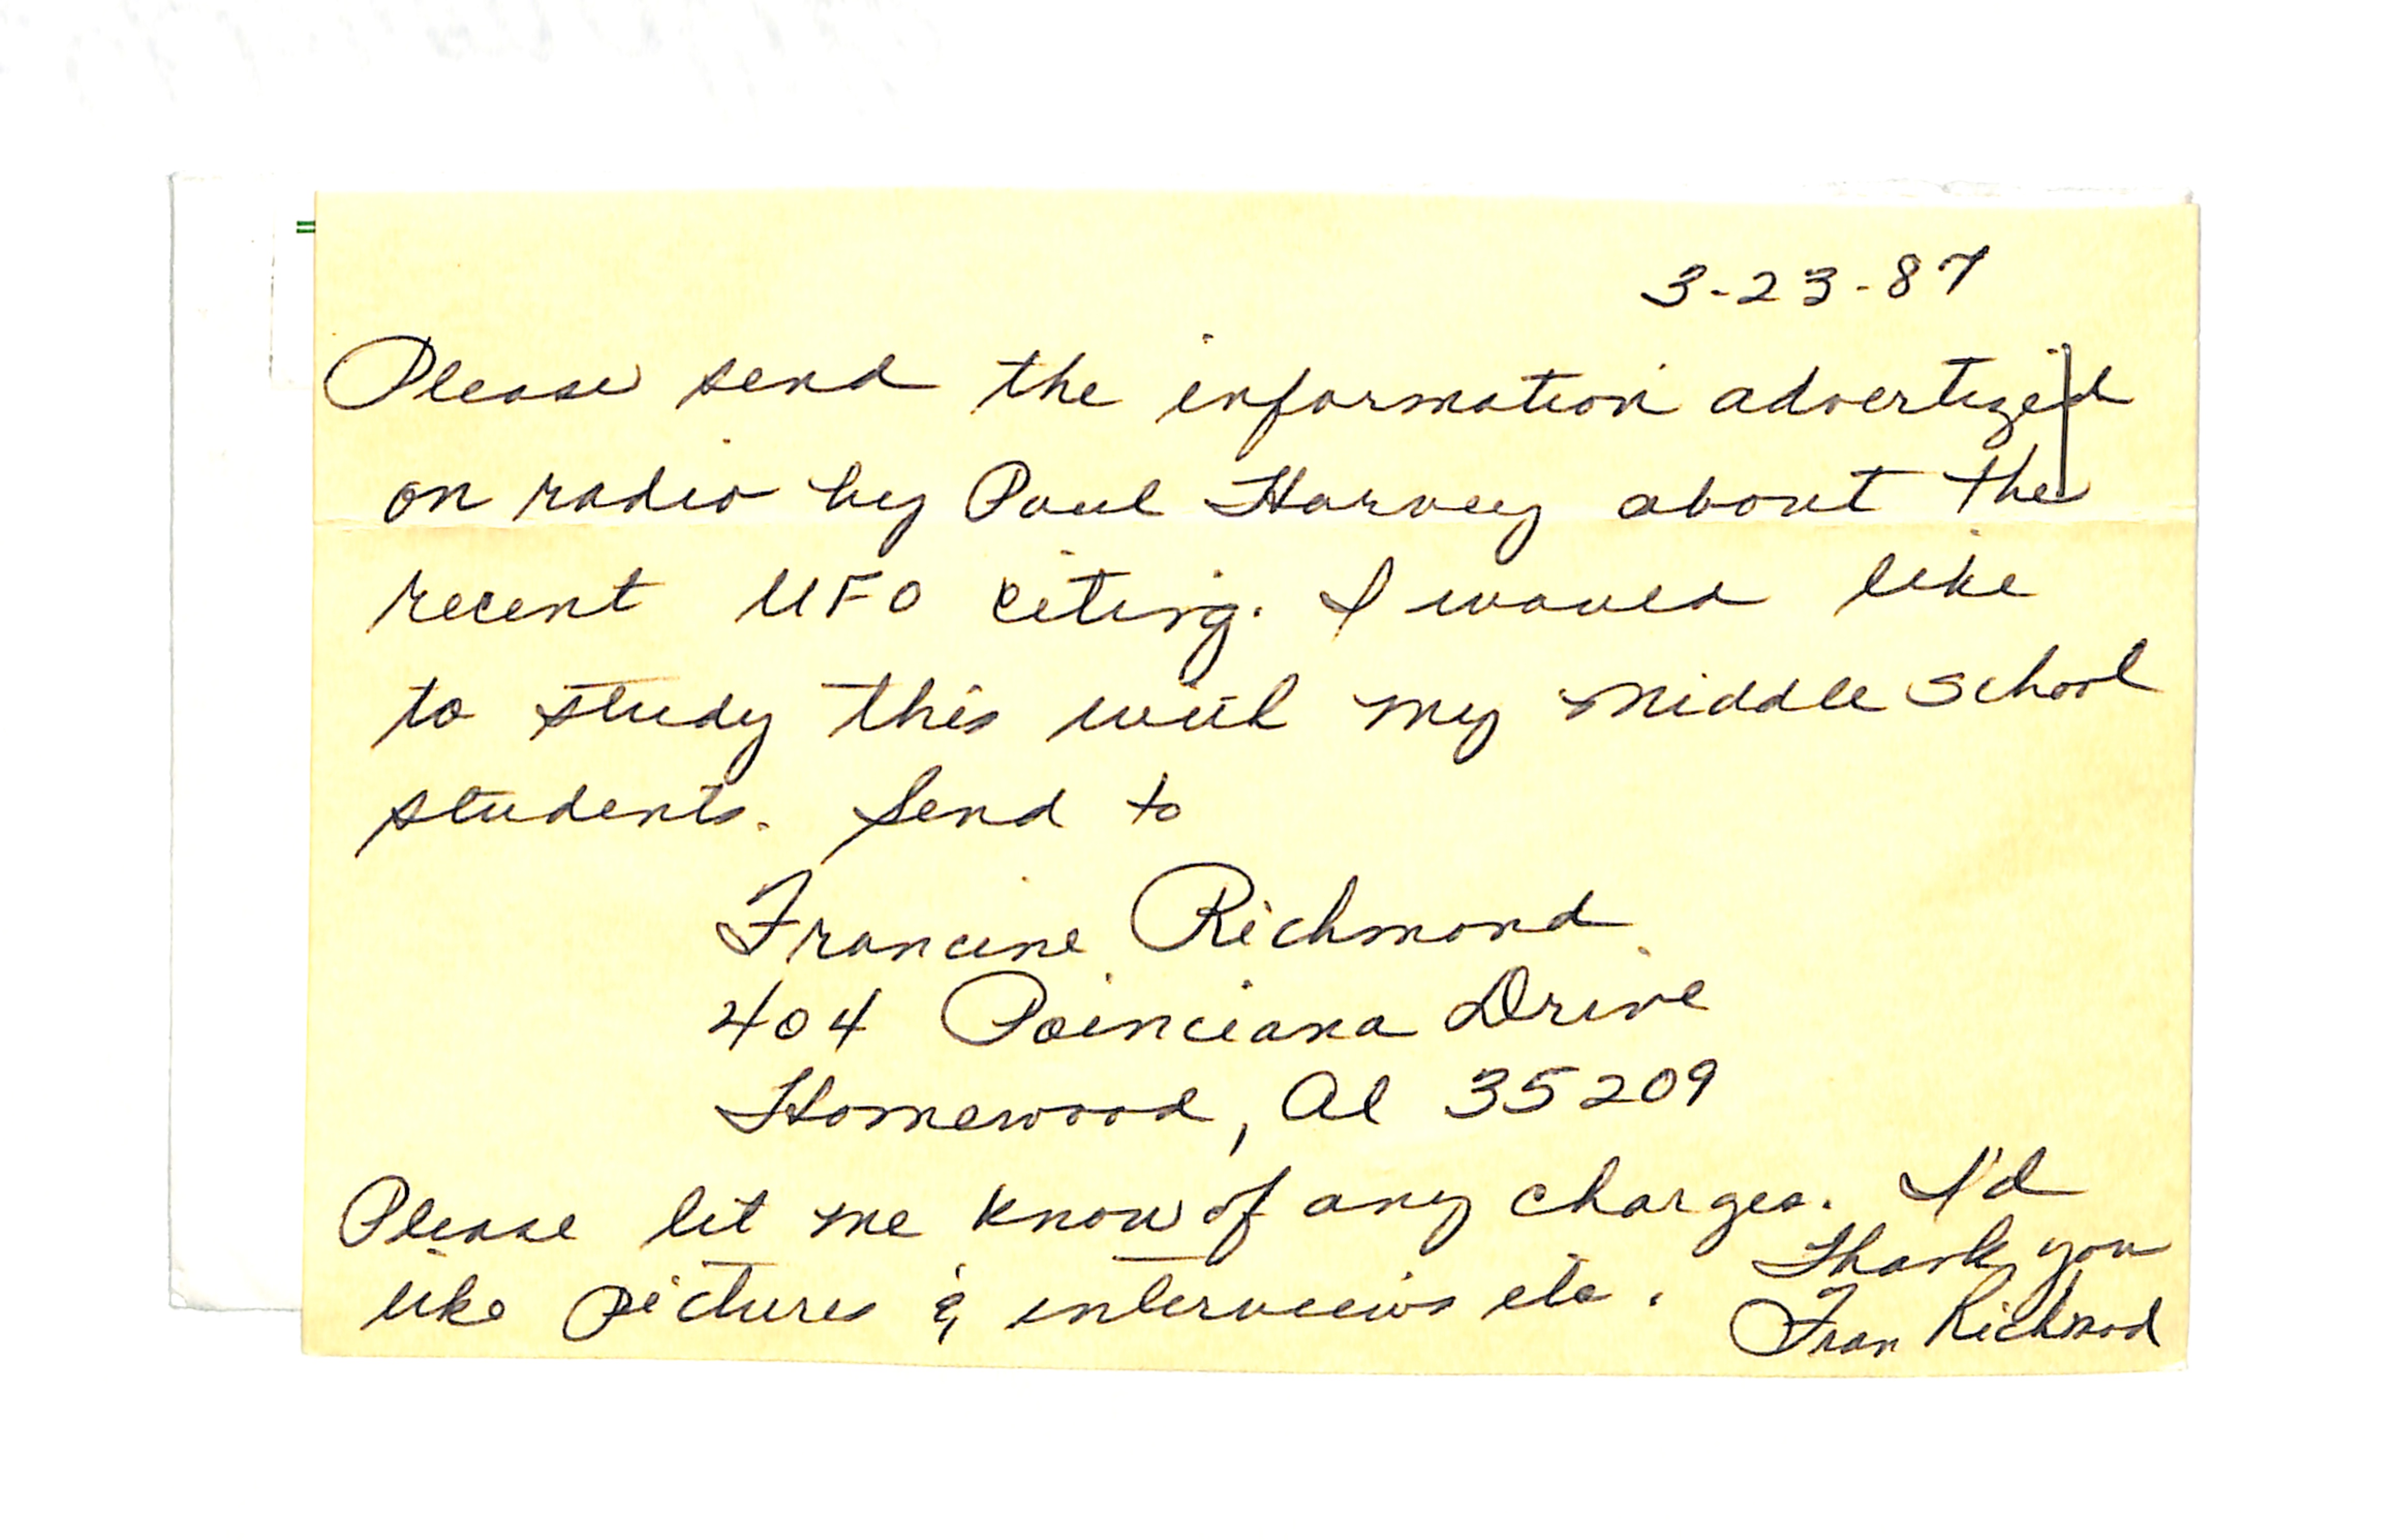 3-23-87
Please send the information advertized
on radio by Paul Harvey about the
recent UFO citing. I would like
to study this with my middle school
students. Send to
Francine Richmond
404 Poinciana Drive
Homewood, Al 35209
Please let me know of any charges. I'd
like pictures & interviews etc.
Thank you
Fran Richmond